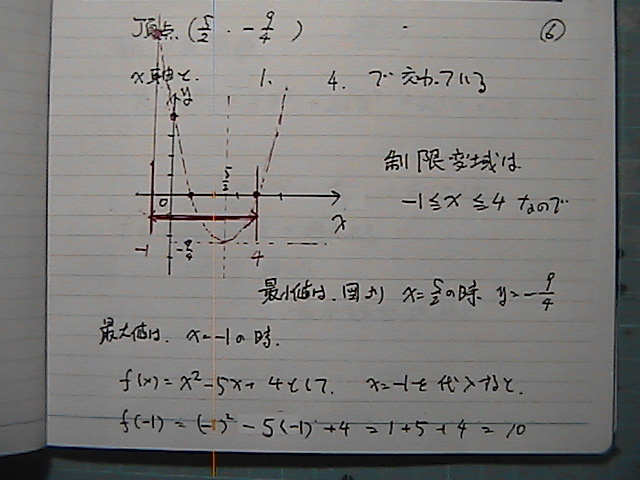 頂点 (5/2, -9/4) ⑥
x軸と、1、4、で交わっている
y
5/2
制限変域は
-1≦x≦4 なので
O
x
-1 -9/4 4
最小値は、図より x=5/2の時 y=-9/4
最大値は、x=-1の時、
f(x)=x²-5x+4として、x=-1を代入すると、
f(-1)=(-1)²-5(-1)+4=1+5+4=10